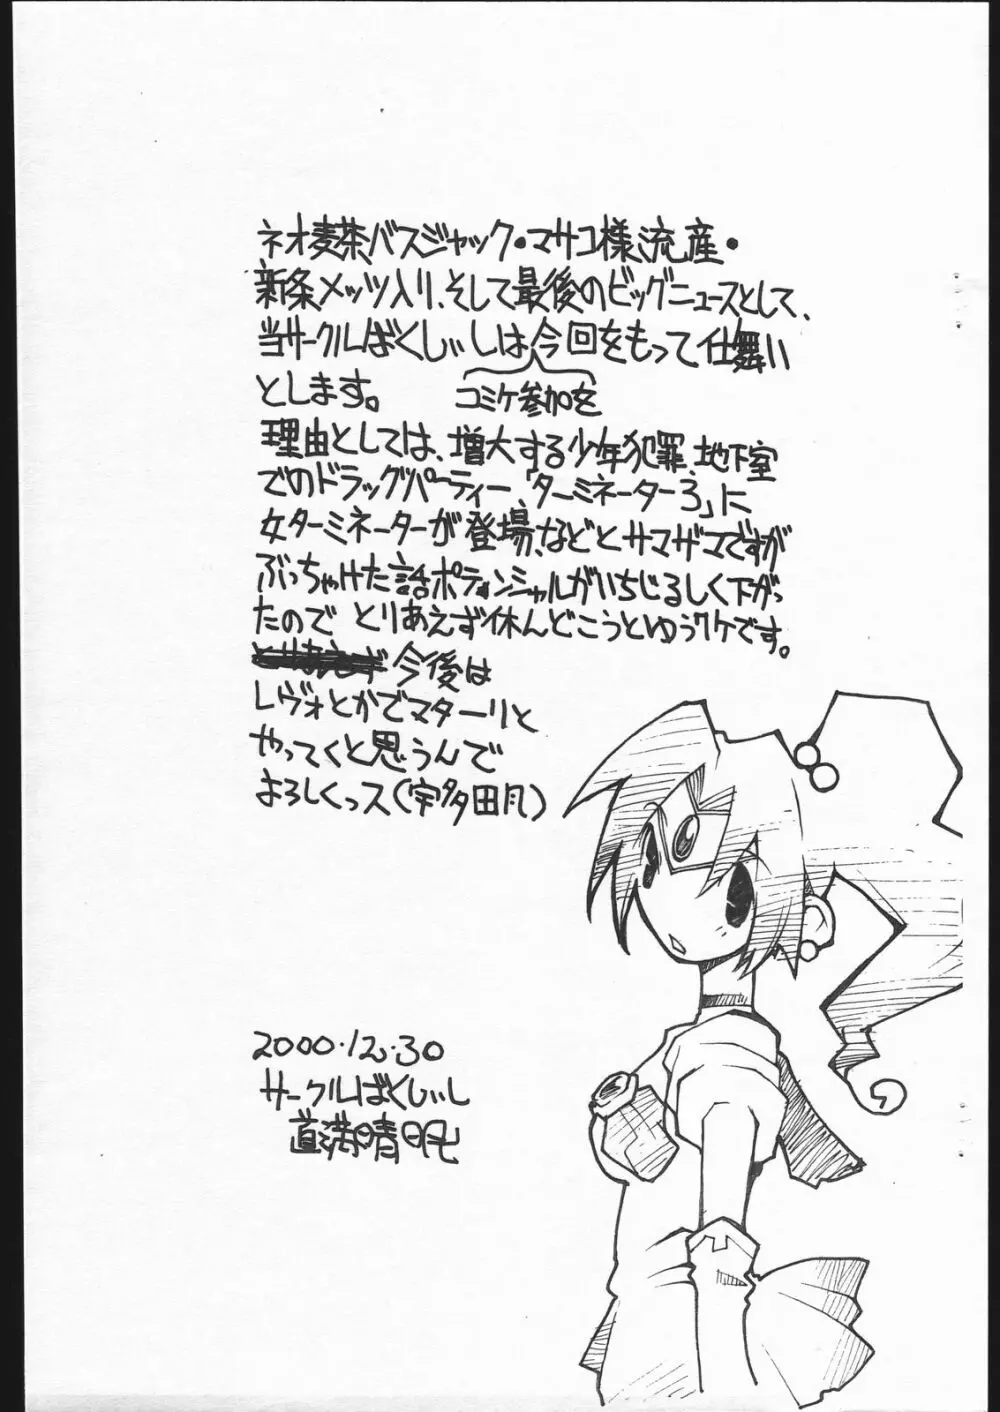 ネオ麦茶バスジャック・マサコ様流産・
新条メッツ入り、そして最後のビッグニュースとして、
当サークルばくしぃしは今回をもって仕舞い
コミケ参加を
とします。
理由としては、増大する少年犯罪、地下室
でのドラッグパーティー、「ターミネーター3」に
女ターミネーターが登場、などとサマザマですが
ぶっちゃけた話ポテンシャルがいちじるしく下がっ
たので とりあえず休んどこうとゆうワケです。
今後は
レヴォとかでマターリと
やってくと思うんで
よろしくっス(宇多田风)
2000.12.30
サークルばくしぃし
道満晴明